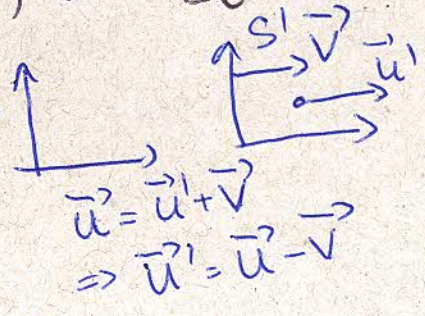 S' \vec{V}
\vec{u}'
\vec{u} = \vec{u}' + \vec{V}
=> \vec{u}' = \vec{u} - \vec{V}